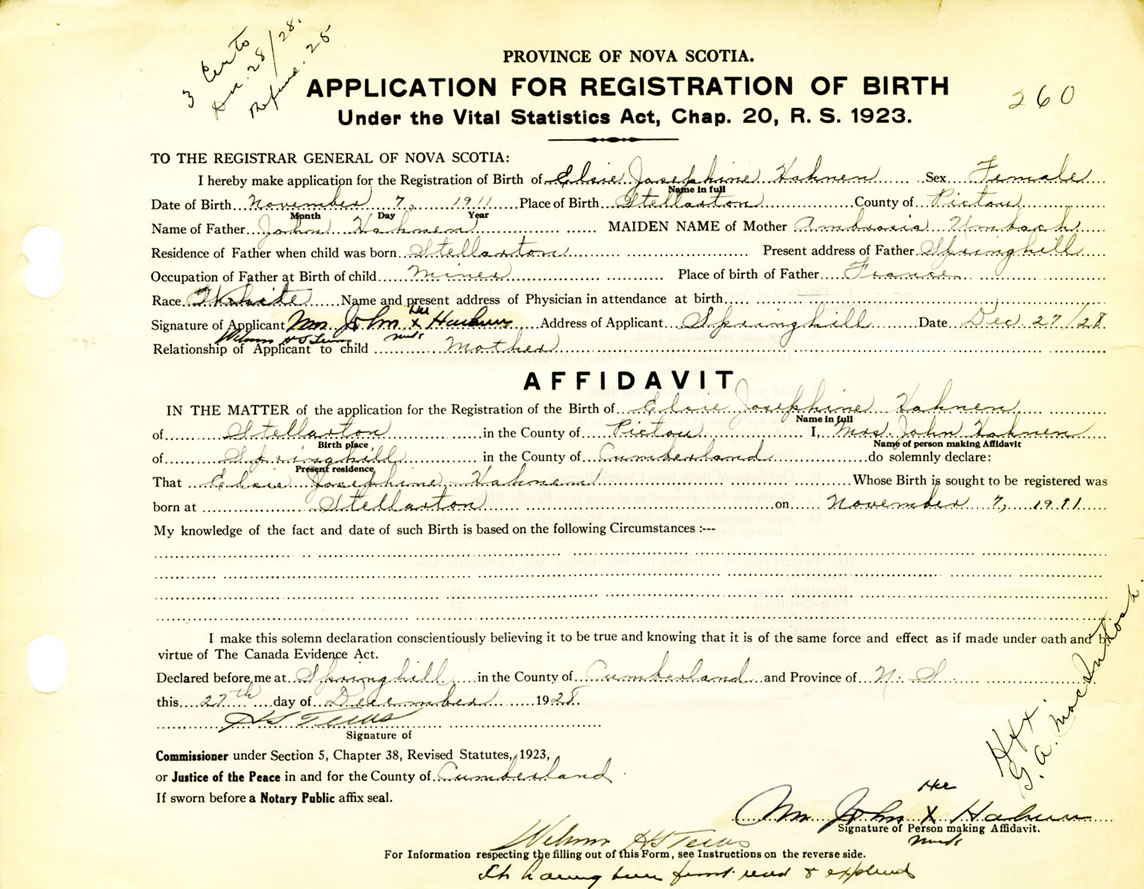 3 Certs
Dec. 28/28.
PROVINCE OF NOVA SCOTIA.
APPLICATION FOR REGISTRATION OF BIRTH
260
Under the Vital Statistics Act, Chap. 20, R. S. 1923.
TO THE REGISTRAR GENERAL OF NOVA SCOTIA:
I hereby make application for the Registration of Birth of Elsie Josephine Hahnen Sex Female
Name in full
Date of Birth November 7, 1911 Place of Birth Stellarton County of Pictou
Month Day Year
Name of Father John Hahnen MAIDEN NAME of Mother Ambrosia Umbach
Residence of Father when child was born Stellarton Present address of Father Springhill
Occupation of Father at Birth of child Miner Place of birth of Father France
Race White Name and present address of Physician in attendance at birth
Her
Signature of Applicant Mrs John X Hahnen Address of Applicant Springhill Date Dec. 27/28
mark
Relationship of Applicant to child Mother
AFFIDAVIT
IN THE MATTER of the application for the Registration of the Birth of Elsie Josephine Hahnen
Name in full
of Stellarton in the County of Pictou I, Mrs. John Hahnen
Birth place Name of person making Affidavit
of Springhill in the County of Cumberland do solemnly declare:
Present residence
That Elsie Josephine Hahnen Whose Birth is sought to be registered was
born at Stellarton on November 7, 1911
My knowledge of the fact and date of such Birth is based on the following Circumstances :---
I make this solemn declaration conscientiously believing it to be true and knowing that it is of the same force and effect as if made under oath and by
virtue of The Canada Evidence Act.
Declared before me at Springhill in the County of Cumberland and Province of N. S.
this 27th day of December 1928.
Signature of
Commissioner under Section 5, Chapter 38, Revised Statutes, 1923,
or Justice of the Peace in and for the County of Cumberland
If sworn before a Notary Public affix seal.
Hfx.
G. A. MacIntosh
Her
Mrs John X Hahnen
Signature of Person making Affidavit.
mark
For Information respecting the filling out of this Form, see Instructions on the reverse side.
It having been first read & explained